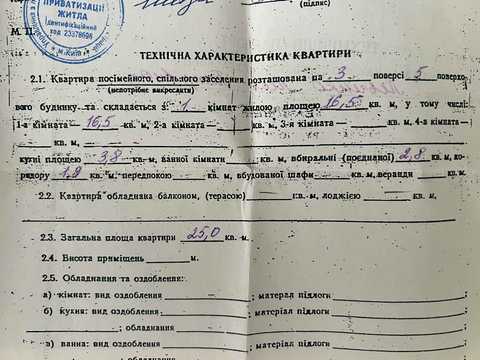 ПРИВАТИЗАЦІЇ
ЖИТЛА
Ідентифікаційний
код 22378696
м. Київ
(підпис)
М. П.
ТЕХНІЧНА ХАРАКТЕРИСТИКА КВАРТИРИ
2.1. Квартира посімейного, спільного заселення розташована на 3 поверсі 5 поверхо-
(непотрібне викреслити)
вого будинку та складається з 1 кімнат жилою площею 16,5 кв. м, у тому числі:
1-а кімната 16,5 кв. м, 2-а кімната кв. м, 3-я кімната кв. м, 4-а кімната
кв. м,
кухні площею 3,8 кв. м, ванної кімнати кв. м, вбиральні (поєднаної) 2,8 кв. м, ко-
ридору 1,9 кв. м, передпокою кв. м, вбудованої шафи кв. м, веранди кв. м.
2.2. Квартира обладнана балконом, (терасою) кв. м, лоджією кв. м.
2.3. Загальна площа квартири 25,0 кв. м.
2.4. Висота приміщень м.
2.5. Обладнання та оздоблення:
а) кімнат: вид оздоблення ; матерал підлоги ;
б) кухня: вид оздоблення ; матеріал підлоги
; обладнання ;
в) ванна: вид оздоблення ; матеріал підлоги ;
; обладнання